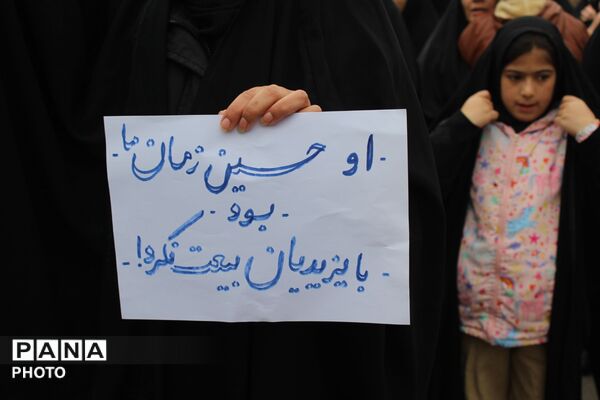 - او حسین زمان ما -
- بود -
- با یزیدیان بیعت نکرد! -
PANA
PHOTO